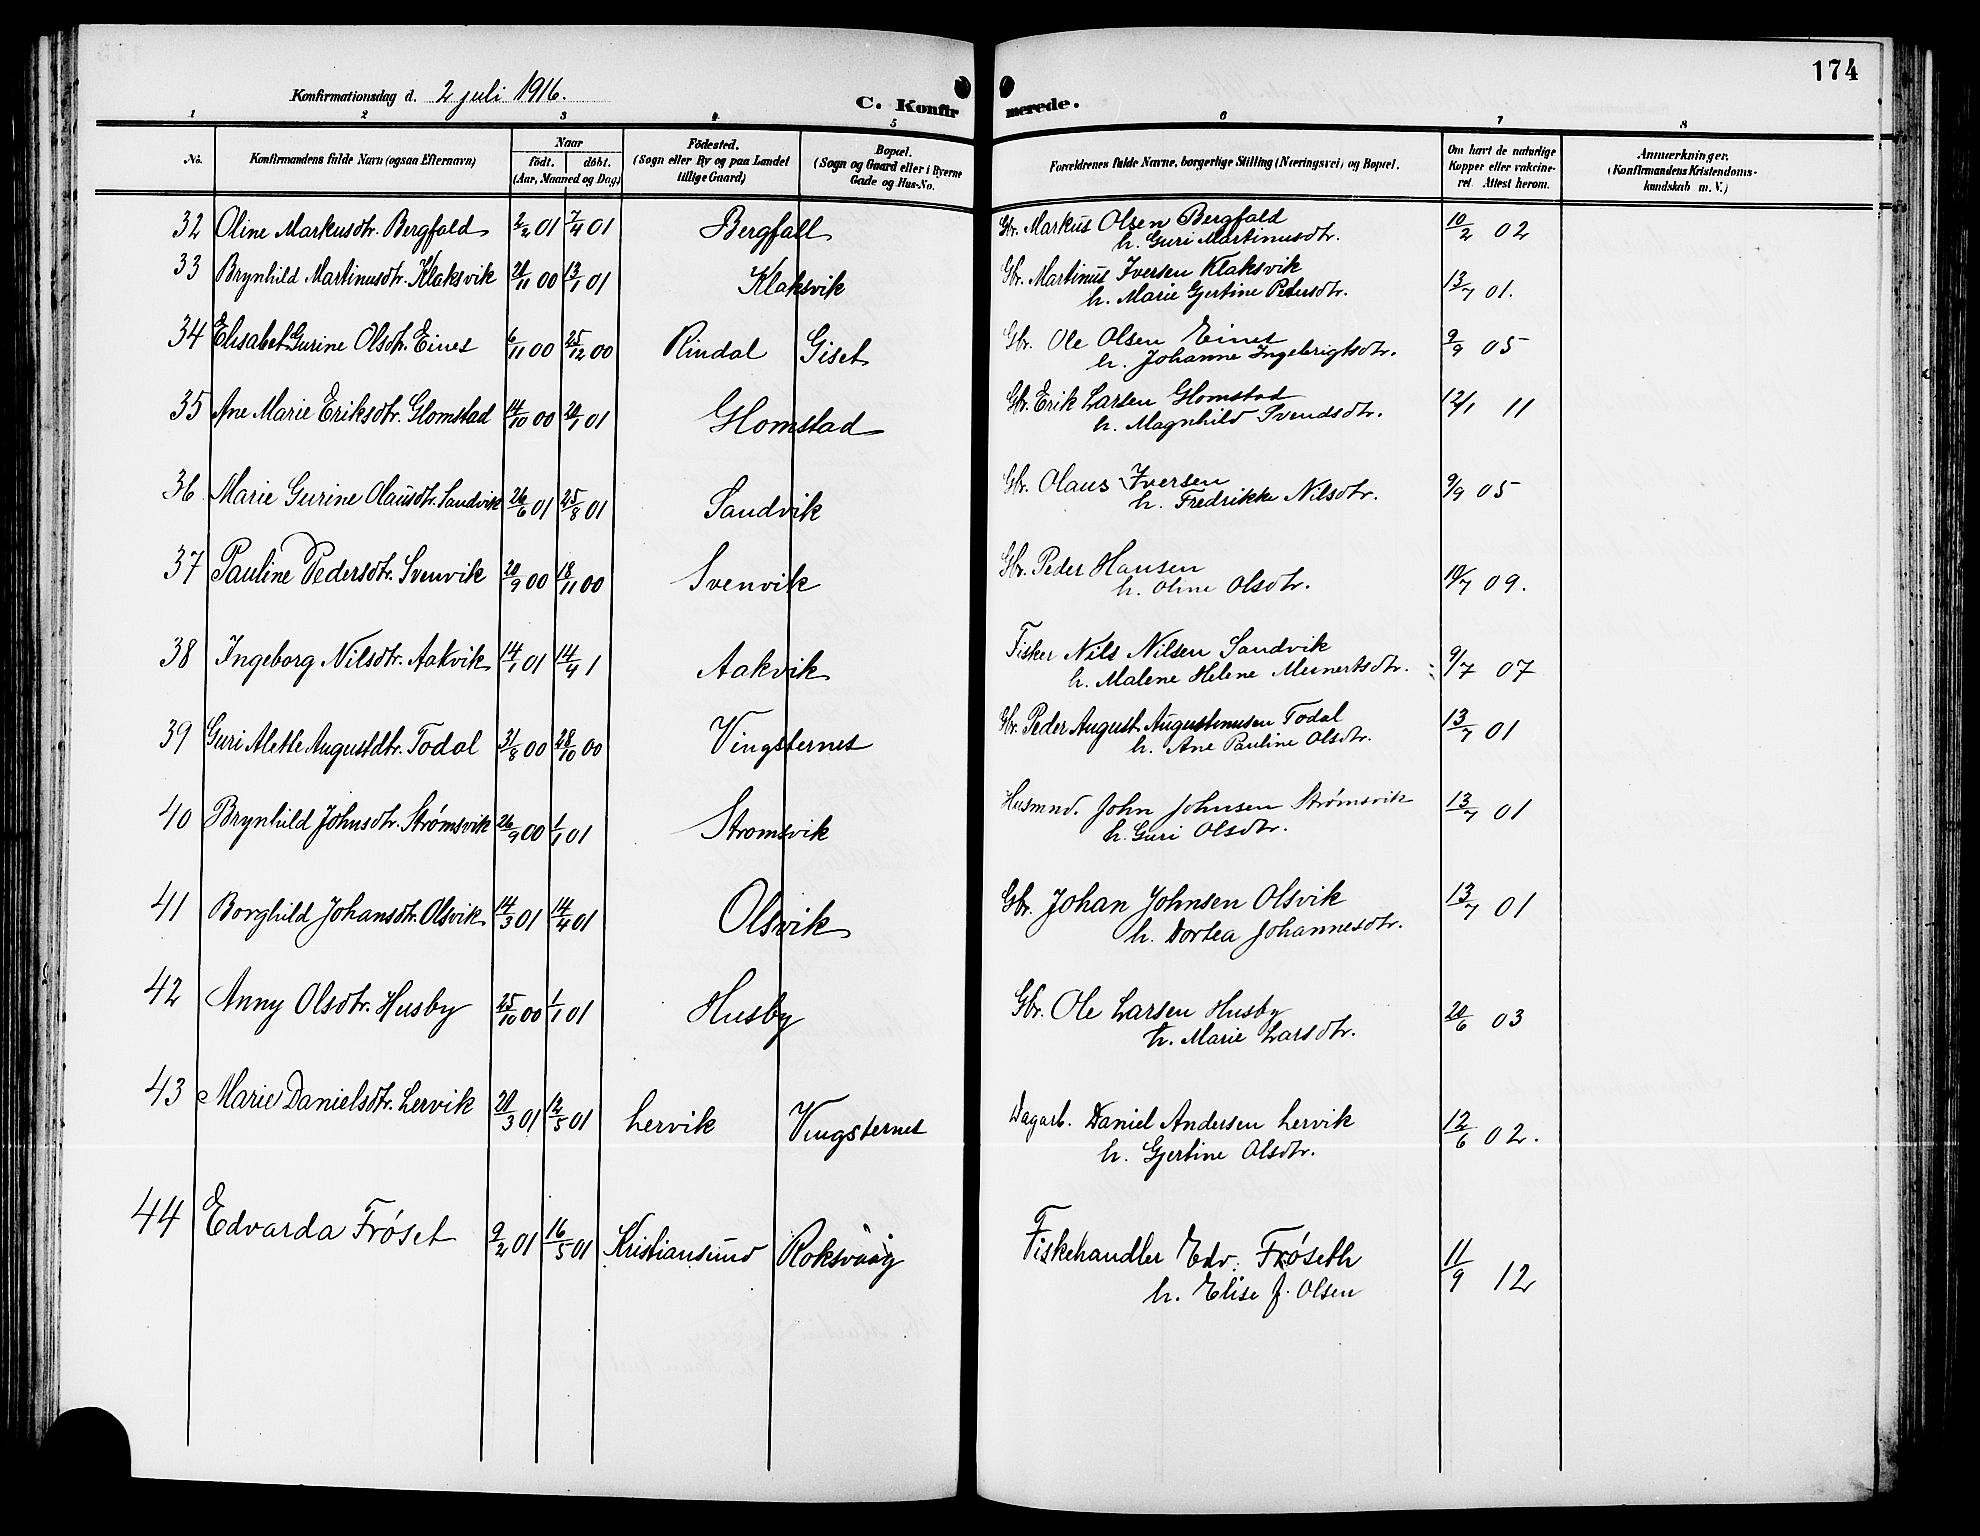 174
Konfirmationsdag d. 2 juli 1916.
C. Konfirmerede.
1 2 3 4 5 6 7 8
No. Konfirmandens fulde Navn (ogsaa Efternavn) Naar födt. döbt. (Aar, Maaned og Dag) Födested. (Sogn eller By og paa Landet tillige Gaard) Bopæl. (Sogn og Gaard eller i Byerne Gade og Hus-No. Forældrenes fulde Navne, borgerlige Stilling (Næringsvei) og Bopæl. Om havt de naturlige Kopper eller vakcineret. Attest herom. Anmærkninger. (Konfirmandens Kristendomskundskab m. V.)
32 Oline Markusdtr. Bergfald 2/2 01 7/4 01 Bergfall Gbr. Markus Olsen Bergfald 10/2 02
h. Guri Martinusdtr.
33 Brynhild Martinusdtr. Klaksvik 21/11 00 13/1 01 Klaksvik Gbr. Martinus Iversen Klaksvik 13/7 01.
h. Marie Gjertine Petersdtr.
34 Elisabet Gurine Olsdtr. Eines 6/11 00 25/12 00 Rindal Giset Gbr. Ole Olsen Einet 9/9 05
h. Johanne Ingebrigtsdtr.
35 Ane Marie Eriksdtr. Glomstad 14/10 00 20/1 01 Glomstad Gbr. Erik Larsen Glomstad 12/1 11
h. Magnhild Svendsdtr.
36 Marie Gurine Olausdtr. Sandvik 26/6 01 25/8 01 Sandvik Gbr. Olaus Iversen 9/9 05
h. Fredrikke Nilsdtr.
37 Pauline Pedersdtr. Svenvik 20/9 00 18/11 00 Svenvik Gbr. Peder Hansen 10/7 09.
h. Oline Olsdtr.
38 Ingeborg Nilsdtr. Aakvik 14/1 01 14/4 1 Aakvik Fisker Nils Nilsen Sandvik 9/7 07
h. Malene Helene Meinertsdtr.
39 Guri Alette Augustdtr. Todal 31/8 00 28/10 00 Vingsternes Gbr. Peder August Augustinusen Todal 13/7 01
h. Ane Pauline Olsdtr.
40 Brynhild Johnsdtr. Strømsvik 26/9 00 1/1 01 Stromsvik Husmnd. John Johnsen Strømsvik 13/7 01
h. Guri Olsdtr.
41 Borghild Johansdtr. Olsvik 14/3 01 14/4 01 Olsvik Gbr. Johan Johnsen Olsvik 13/7 01
h. Dortea Johannesdtr.
42 Anny Olsdtr. Husby 25/10 00 1/1 01 Husby Gbr. Ole Larsen Husby 20/6 03
h. Marie Larsdtr.
43 Marie Danielsdtr. Lervik 20/3 01 12/5 01 Lervik Vingsternes Dagarb. Daniel Andersen Lervik 12/6 02.
h. Gjertine Olsdtr.
44 Edvarda Frøset 9/2 01 16/5 01 Kristiansund Roksvaag Fiskehandler Edv. Frøseth 11/9 12
h. Elise J. Olsen